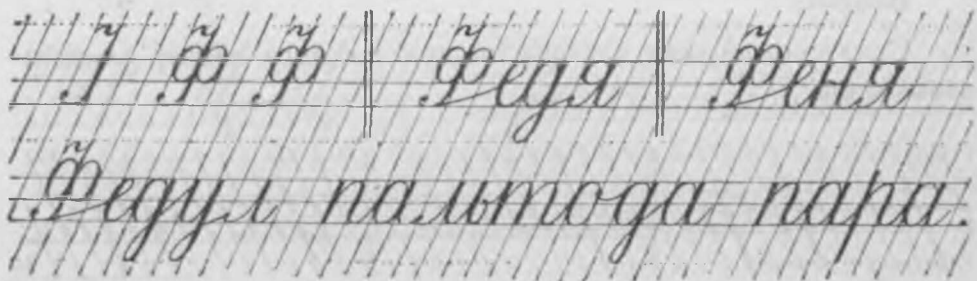 Ф Ф Федя Феня
Федул пальтода пара.